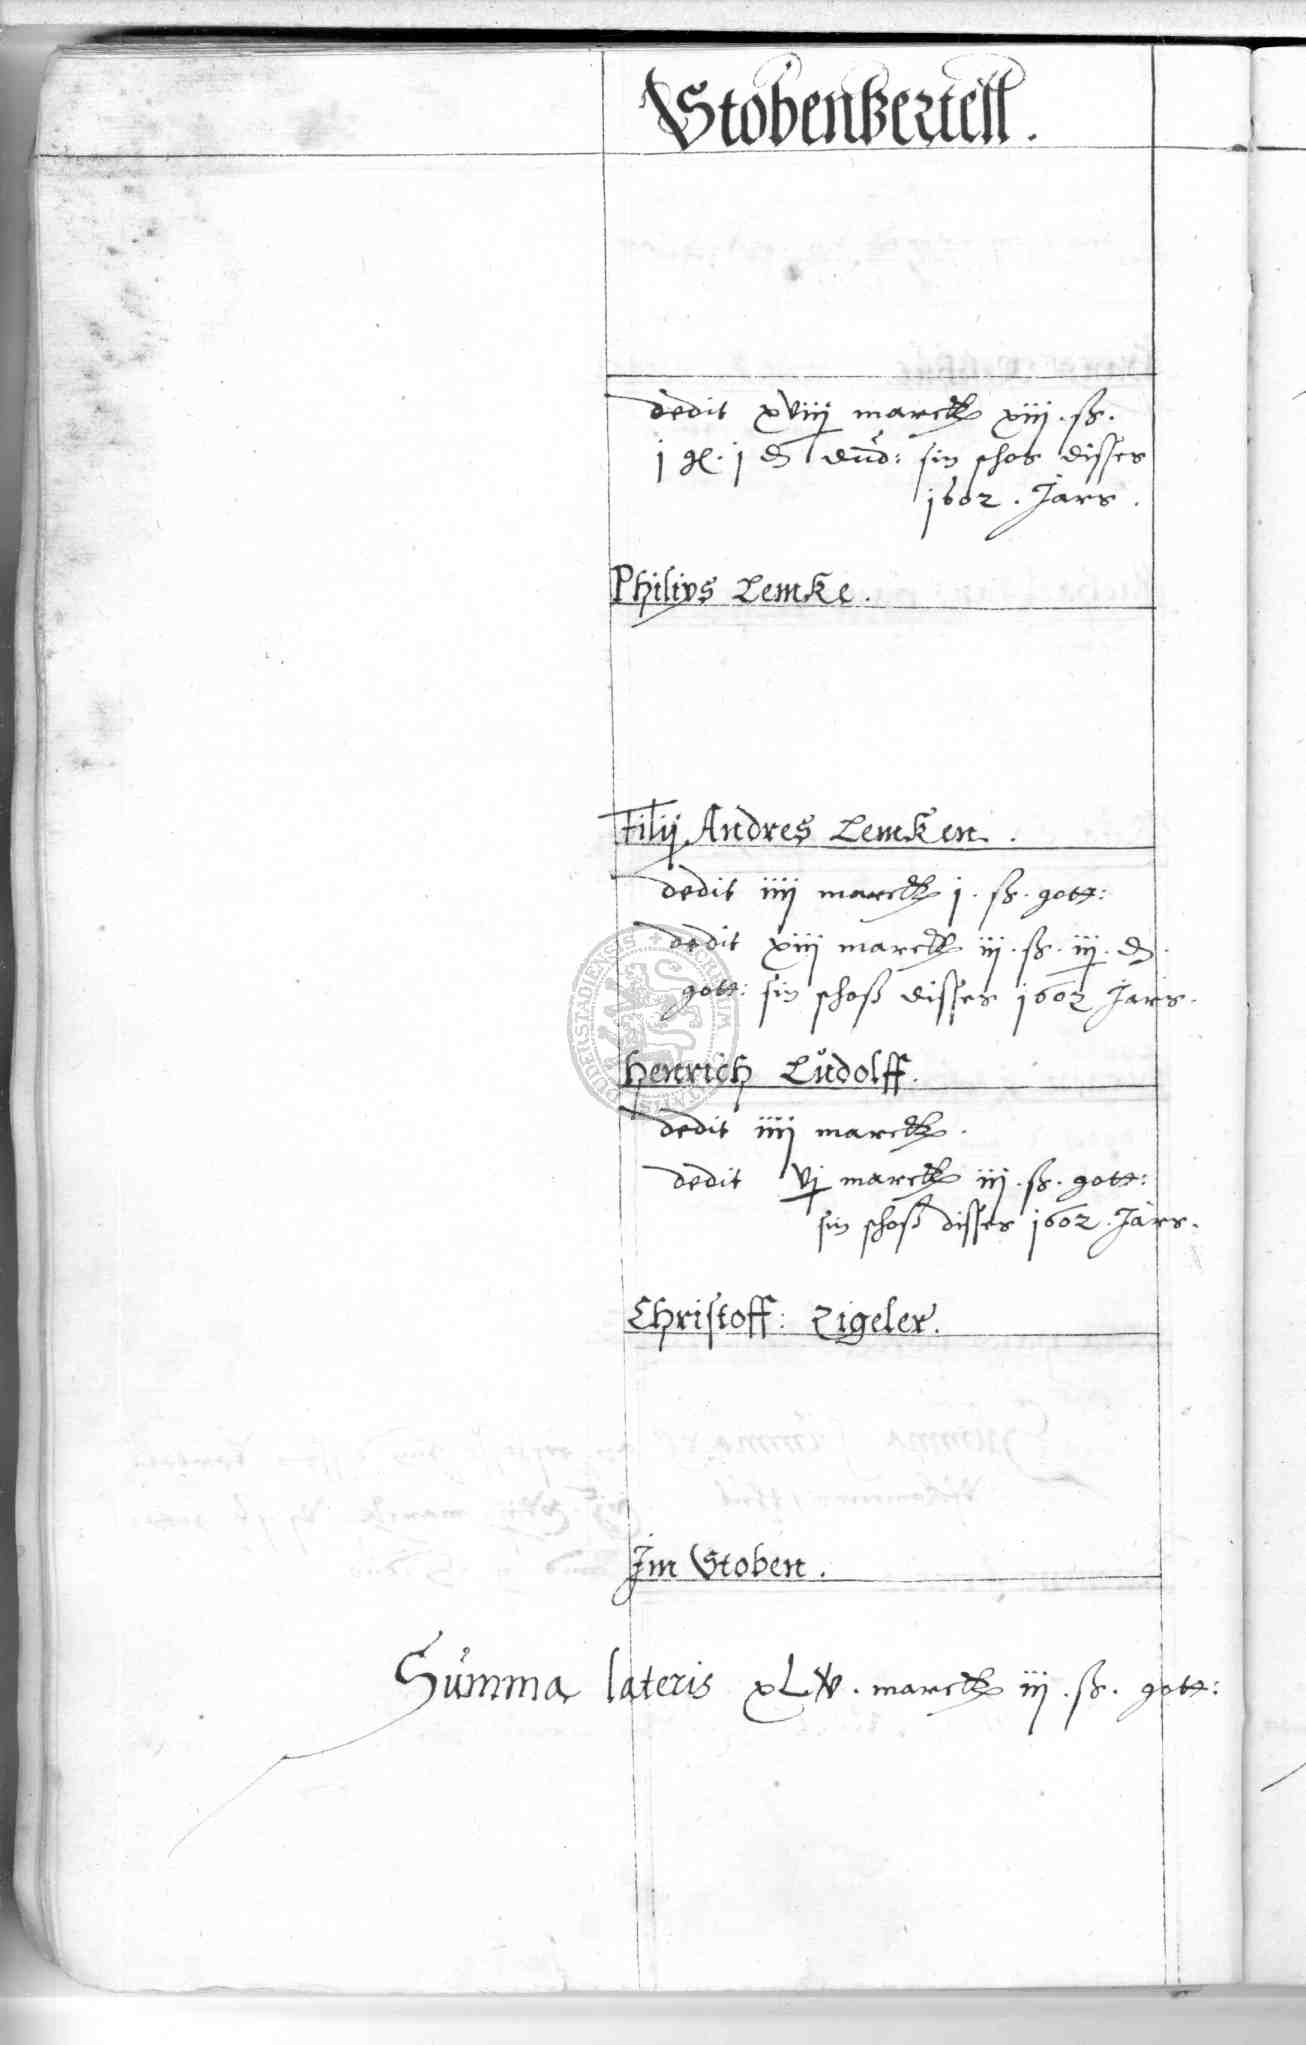 Stobenkertell.
dedit xviij marck xiij. ß.
j gl. j d dud: sin schos disses
1602. Jars.
Philips Lemke.
Filij Andres Lemken.
dedit iiij marck j. ß. gott:
dedit xiij marck iij. ß. iij. d.
gott: sin schoß disses 1602 Jars.
Henrich Lůdolff.
dedit iiij marck.
dedit vj marck iij. ß. gott:
sin schoß disses 1602. Jars.
Christoff: Zigeler.
Im Stoben.
Sůmma lateris xLv. marck iij. ß. gott: